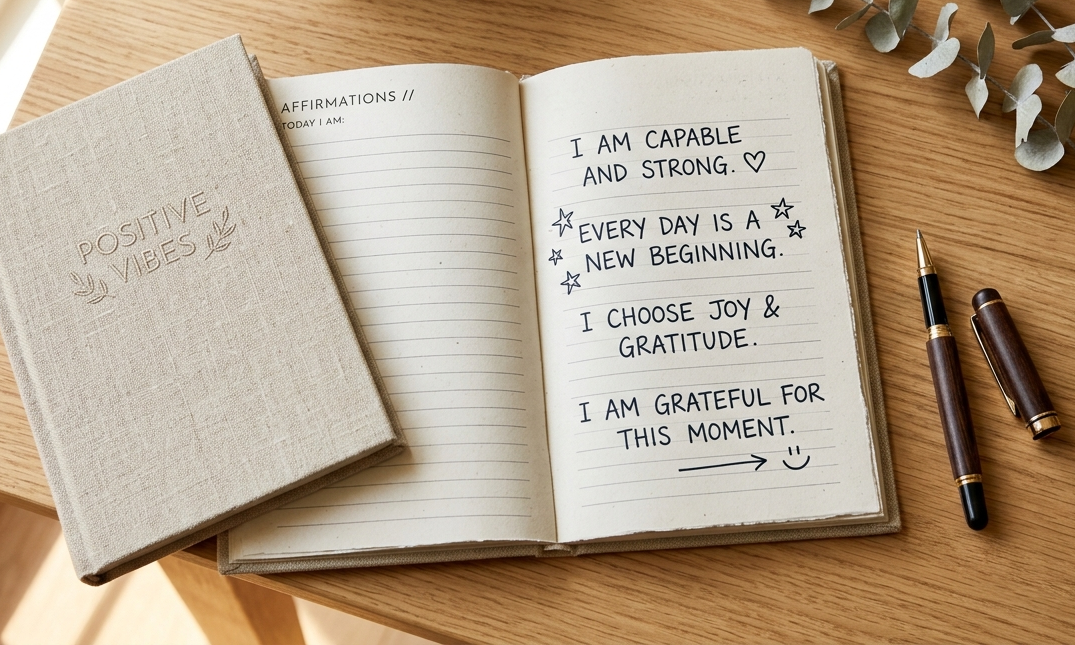 POSITIVE
VIBES
AFFIRMATIONS //
TODAY I AM:
I AM CAPABLE
AND STRONG. ♡
EVERY DAY IS A
NEW BEGINNING.
I CHOOSE JOY &
GRATITUDE.
I AM GRATEFUL FOR
THIS MOMENT.